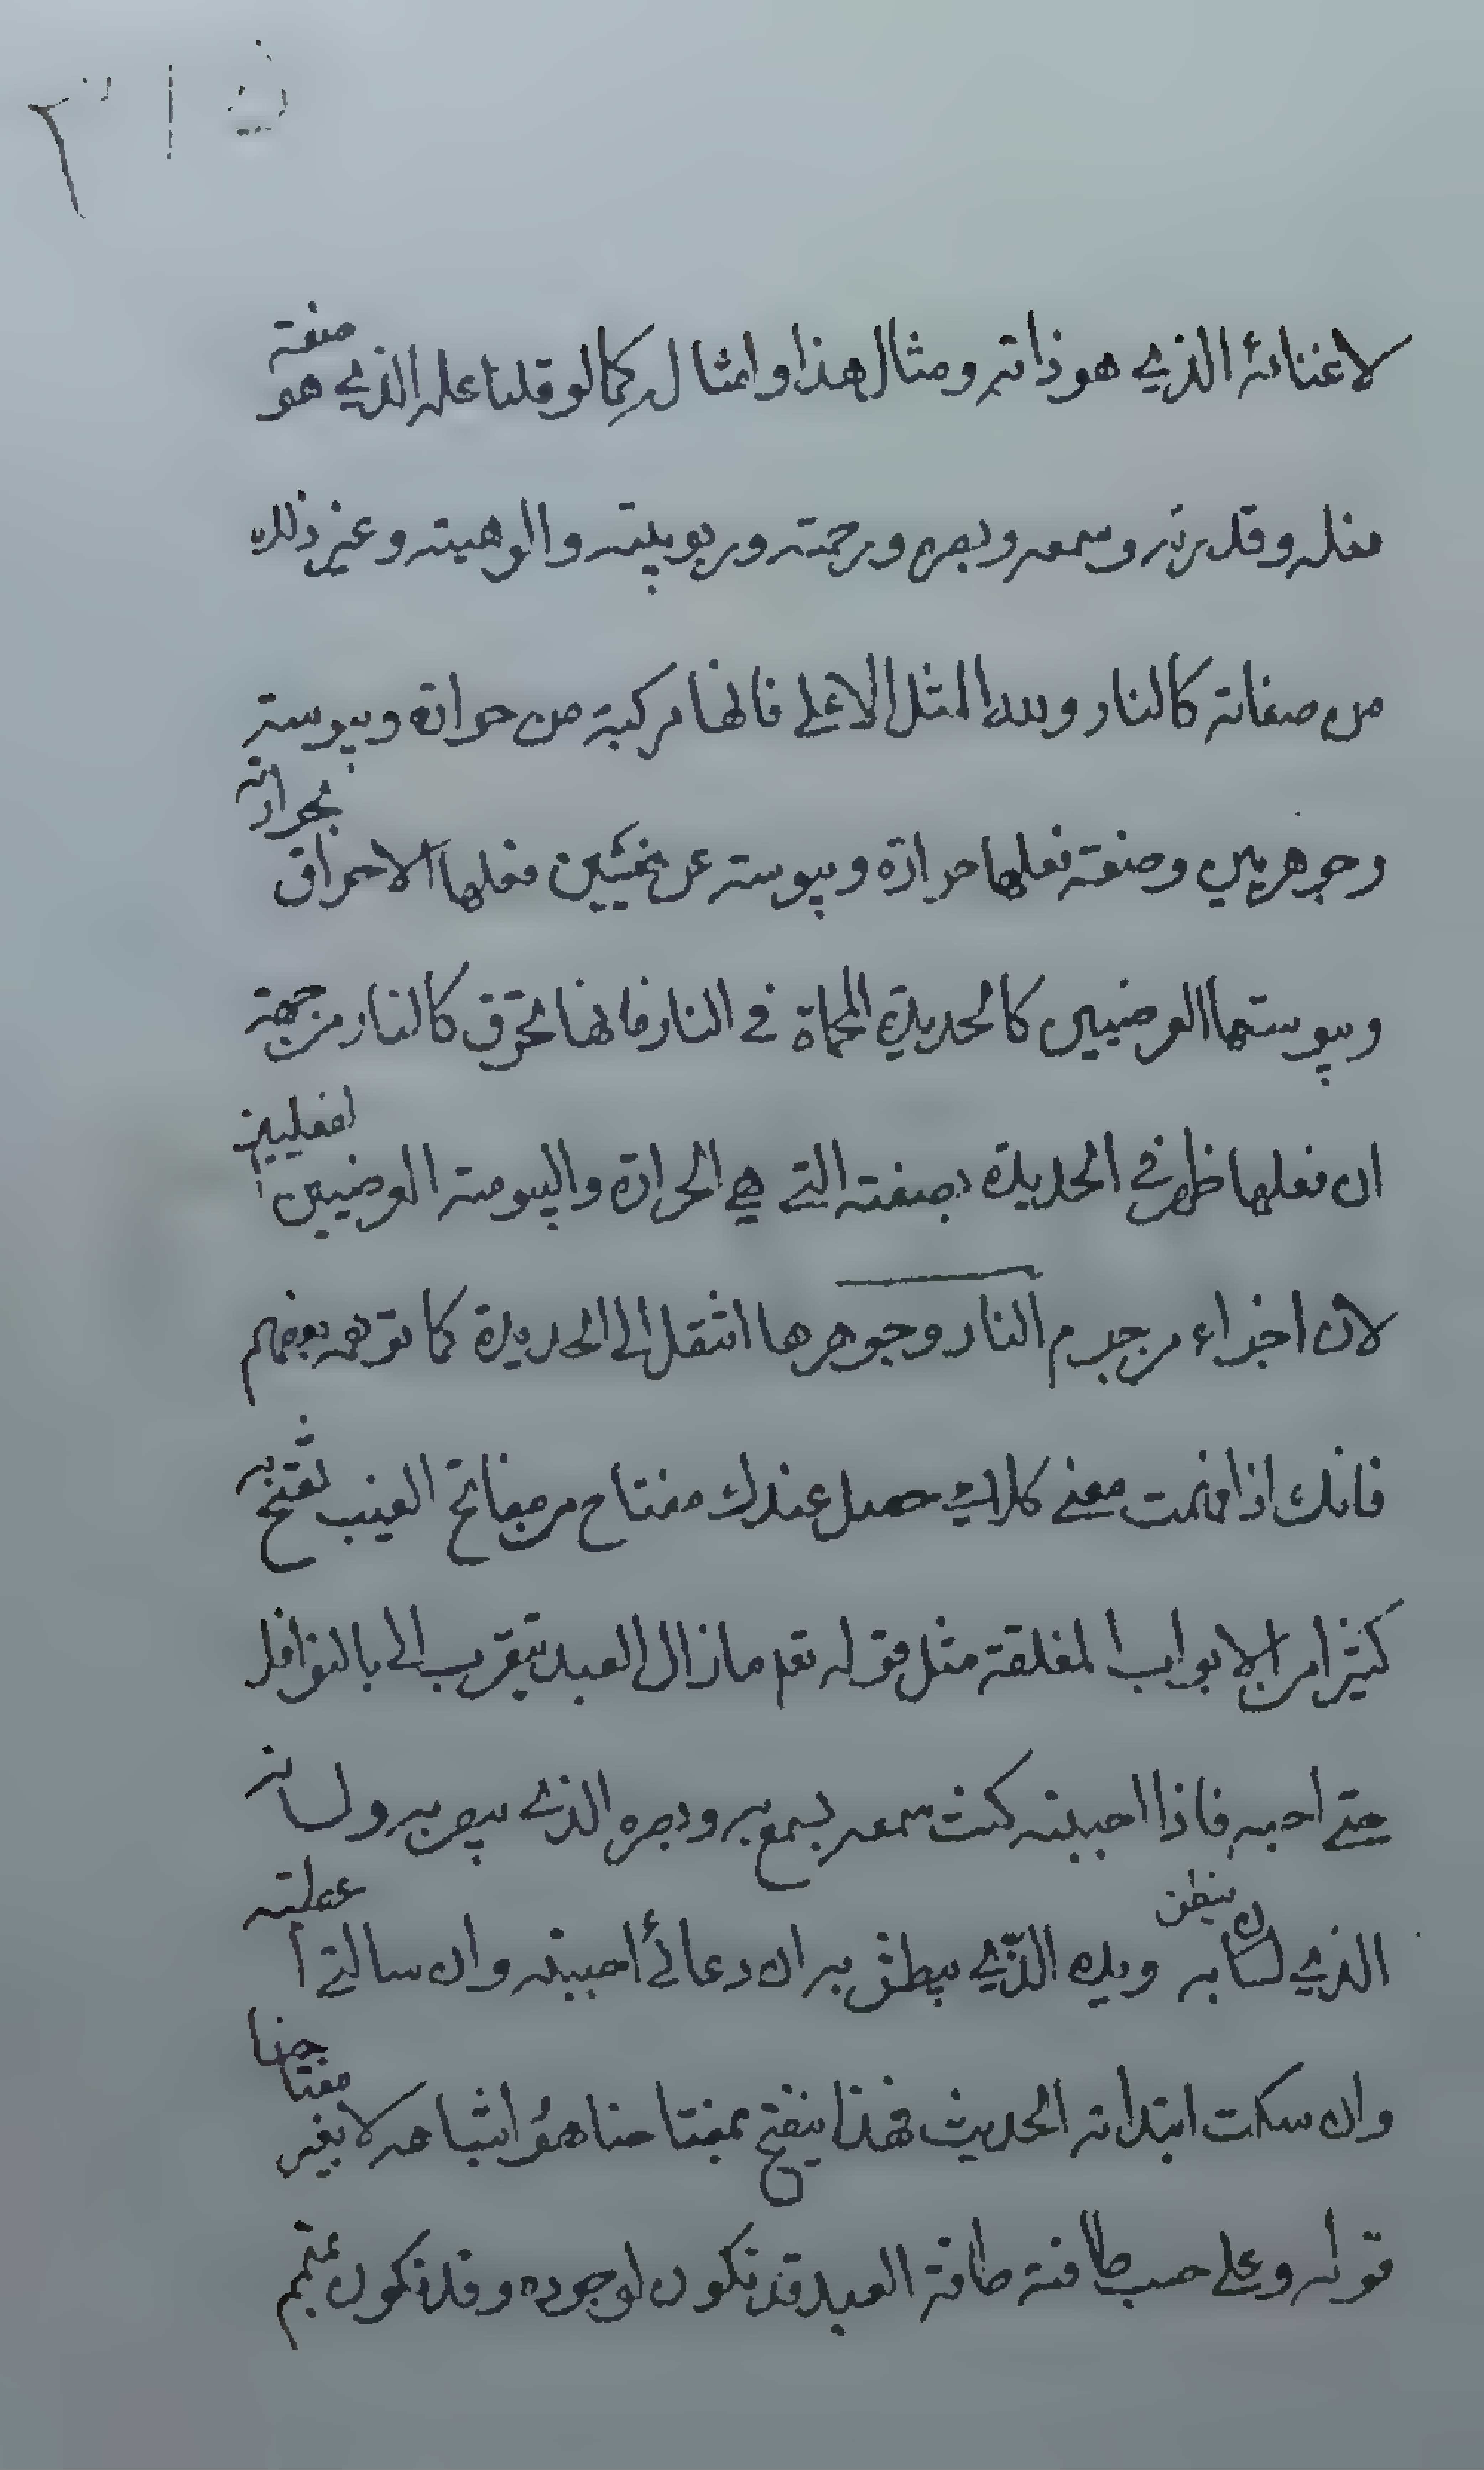 لاغنائه الذي هو ذاته ومثال هذا وامثاله كما لو قلنا علمه الذي هو صفة
فعله وقدرته وسمعه وبصره ورحمته وربوبيته والوهيته وغير ذلك
من صفاته كالنار ولله المثل الاعلى فانها مركبة من حرارة ويبوسة
وجوهريين وصفة فعلها حرارة ويبوسة عرضيتين ففعلها الاحراق بحرارته
ويبوستها العرضيين كالحديدة المحماة في النار فانها تحرق كالنار من جهة
ان فعلها ظهر في الحديدة بصفته التي هي الحرارة واليبوسة العرضيين الفعليين
لان اجزاء من جرم النار وجوهرها انتقل الى الحديدة كما توهمه بعضهم
فانك اذا فهمت معنى كلامي حصل عندك مفتاح من مفاتح الغيب تفتح به
كثيرا من الابواب المغلقة مثل قوله تعم ما زال العبد يتقرب الى بالنوافل
حتى احبه فاذا احببته كنت سمعه يسمع به وبصره الذي يبصر به ولسانه
الذي ينطق به ويده الذي يبطش به ان دعاني احببته وان سالتي اعطيته
وان سكت ابتداته الحديث فهذا ينفتح بمفتاحنا هو اشباهه لا بغير مفتاحنا
قوله وعلى حسب طاقته طاقة العبد قد تكون لوجوده وقد تكون